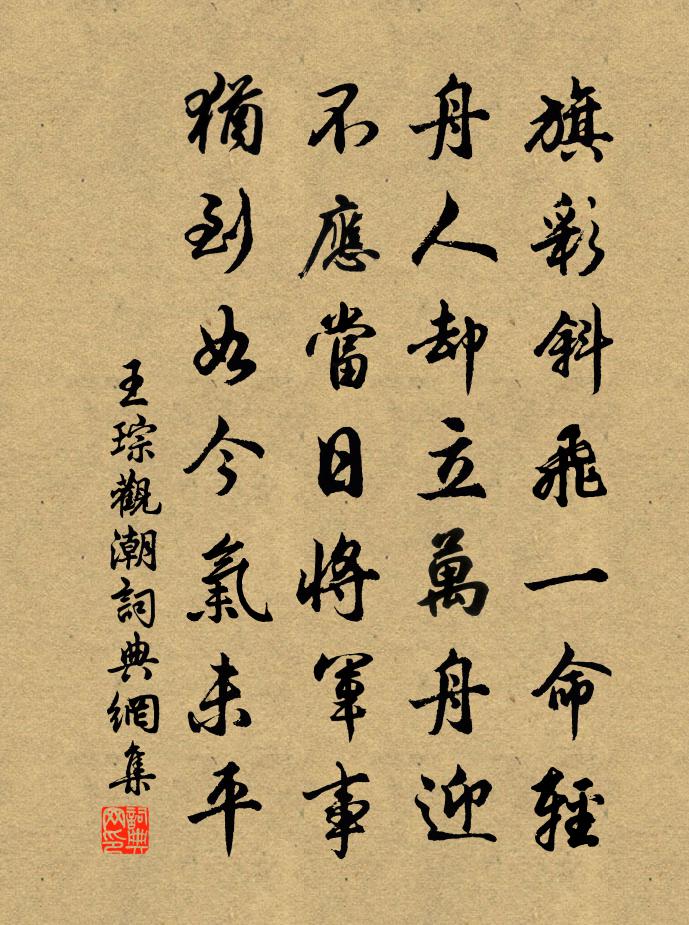 旗彩斜飛一命輕
舟人却立萬舟迎
不應當日將軍事
猶到如今氣未平
王琮觀潮詞典網集
詞典網印